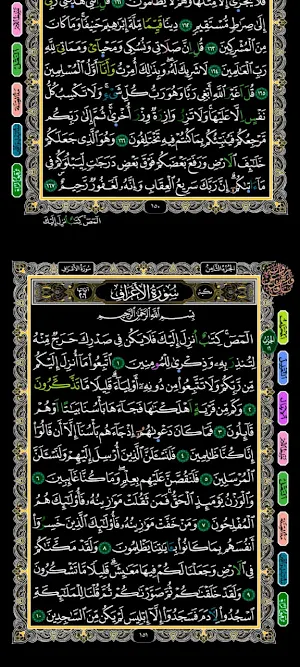 فلا يجزى إلا مثلها وهم لا يظلمون ١٦١ قل إنني هدىني ربي
إلى صراط مستقيم ١٦٢ دينا قيما ملة إبرهيم حنيفا وما كان
من المشركين ١٦٣ قل ان صلاتي ونسكي ومحياي ومماتي لله
رب العلمين ١٦٤ لا شريك له وبذلك أمرت وأنا أول المسلمين
١٦٥ قل اغير الله أبغي ربا وهو رب كل شيء ولا تكسب كل
نفس الا عليها ولا تزر وازرة وزر اخرى ثم إلى ربكم
مرجعكم فينبئكم بما كنتم فيه تختلفون ١٦٦ وهو الذي جعلكم
خلئف الارض ورفع بعضكم فوق بعض درجت ليبلوكم في
ما ءاتيكم إن ربك سريع العقاب وإنه لغفور رحيم ١٦٧
١٥٠
المص كتب انزل إليك
الجزء الثامن
سورة الأعراف
سورة الأعراف
بسم الله الرحمن الرحيم
المص كتب انزل إليك فلا يكن في صدرك حرج منه
لتنذر به وذكرى للمومنين ١ اتبعوا ما أنزل إليكم
من ربكم ولا تتبعوا من دونه أولياء قليلا ما تذكرون
٢ وكم من قرية اهلكنها فجاءها بأسنا بيتا او هم
قائلون ٣ فما كان دعويهم إذ جاءهم بأسنا إلا أن قالوا
إنا كنا ظلمين ٤ فلنسئلن الذين أرسل إليهم ولنسئلن
المرسلين ٥ فلنقصن عليهم بعلم وما كنا غائبين ٦
والوزن يومئذ الحق فمن ثقلت موزينه فأولئك هم
المفلحون ٧ ومن خفت موزينه فأولئك الذين خسروا
أنفسهم بما كانوا بئايتنا يظلمون ٨ ولقد مكنكم
في الارض وجعلنا لكم فيها معيش قليلا ما تشكرون
٩ ولقد خلقنكم ثم صورنكم ثم قلنا للملئكة
اسجدوا لادم فسجدوا إلا إبليس لم يكن من السجدين ١٠
١٥١